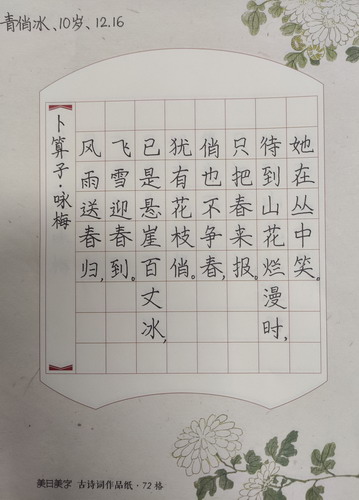 青俏冰、10岁、12.16
卜算子·咏梅
风雨送春归,
飞雪迎春到。
已是悬崖百丈冰,
犹有花枝俏。
俏也不争春,
只把春来报。
待到山花烂漫时,
她在丛中笑。
美日美字 古诗词作品纸·72格